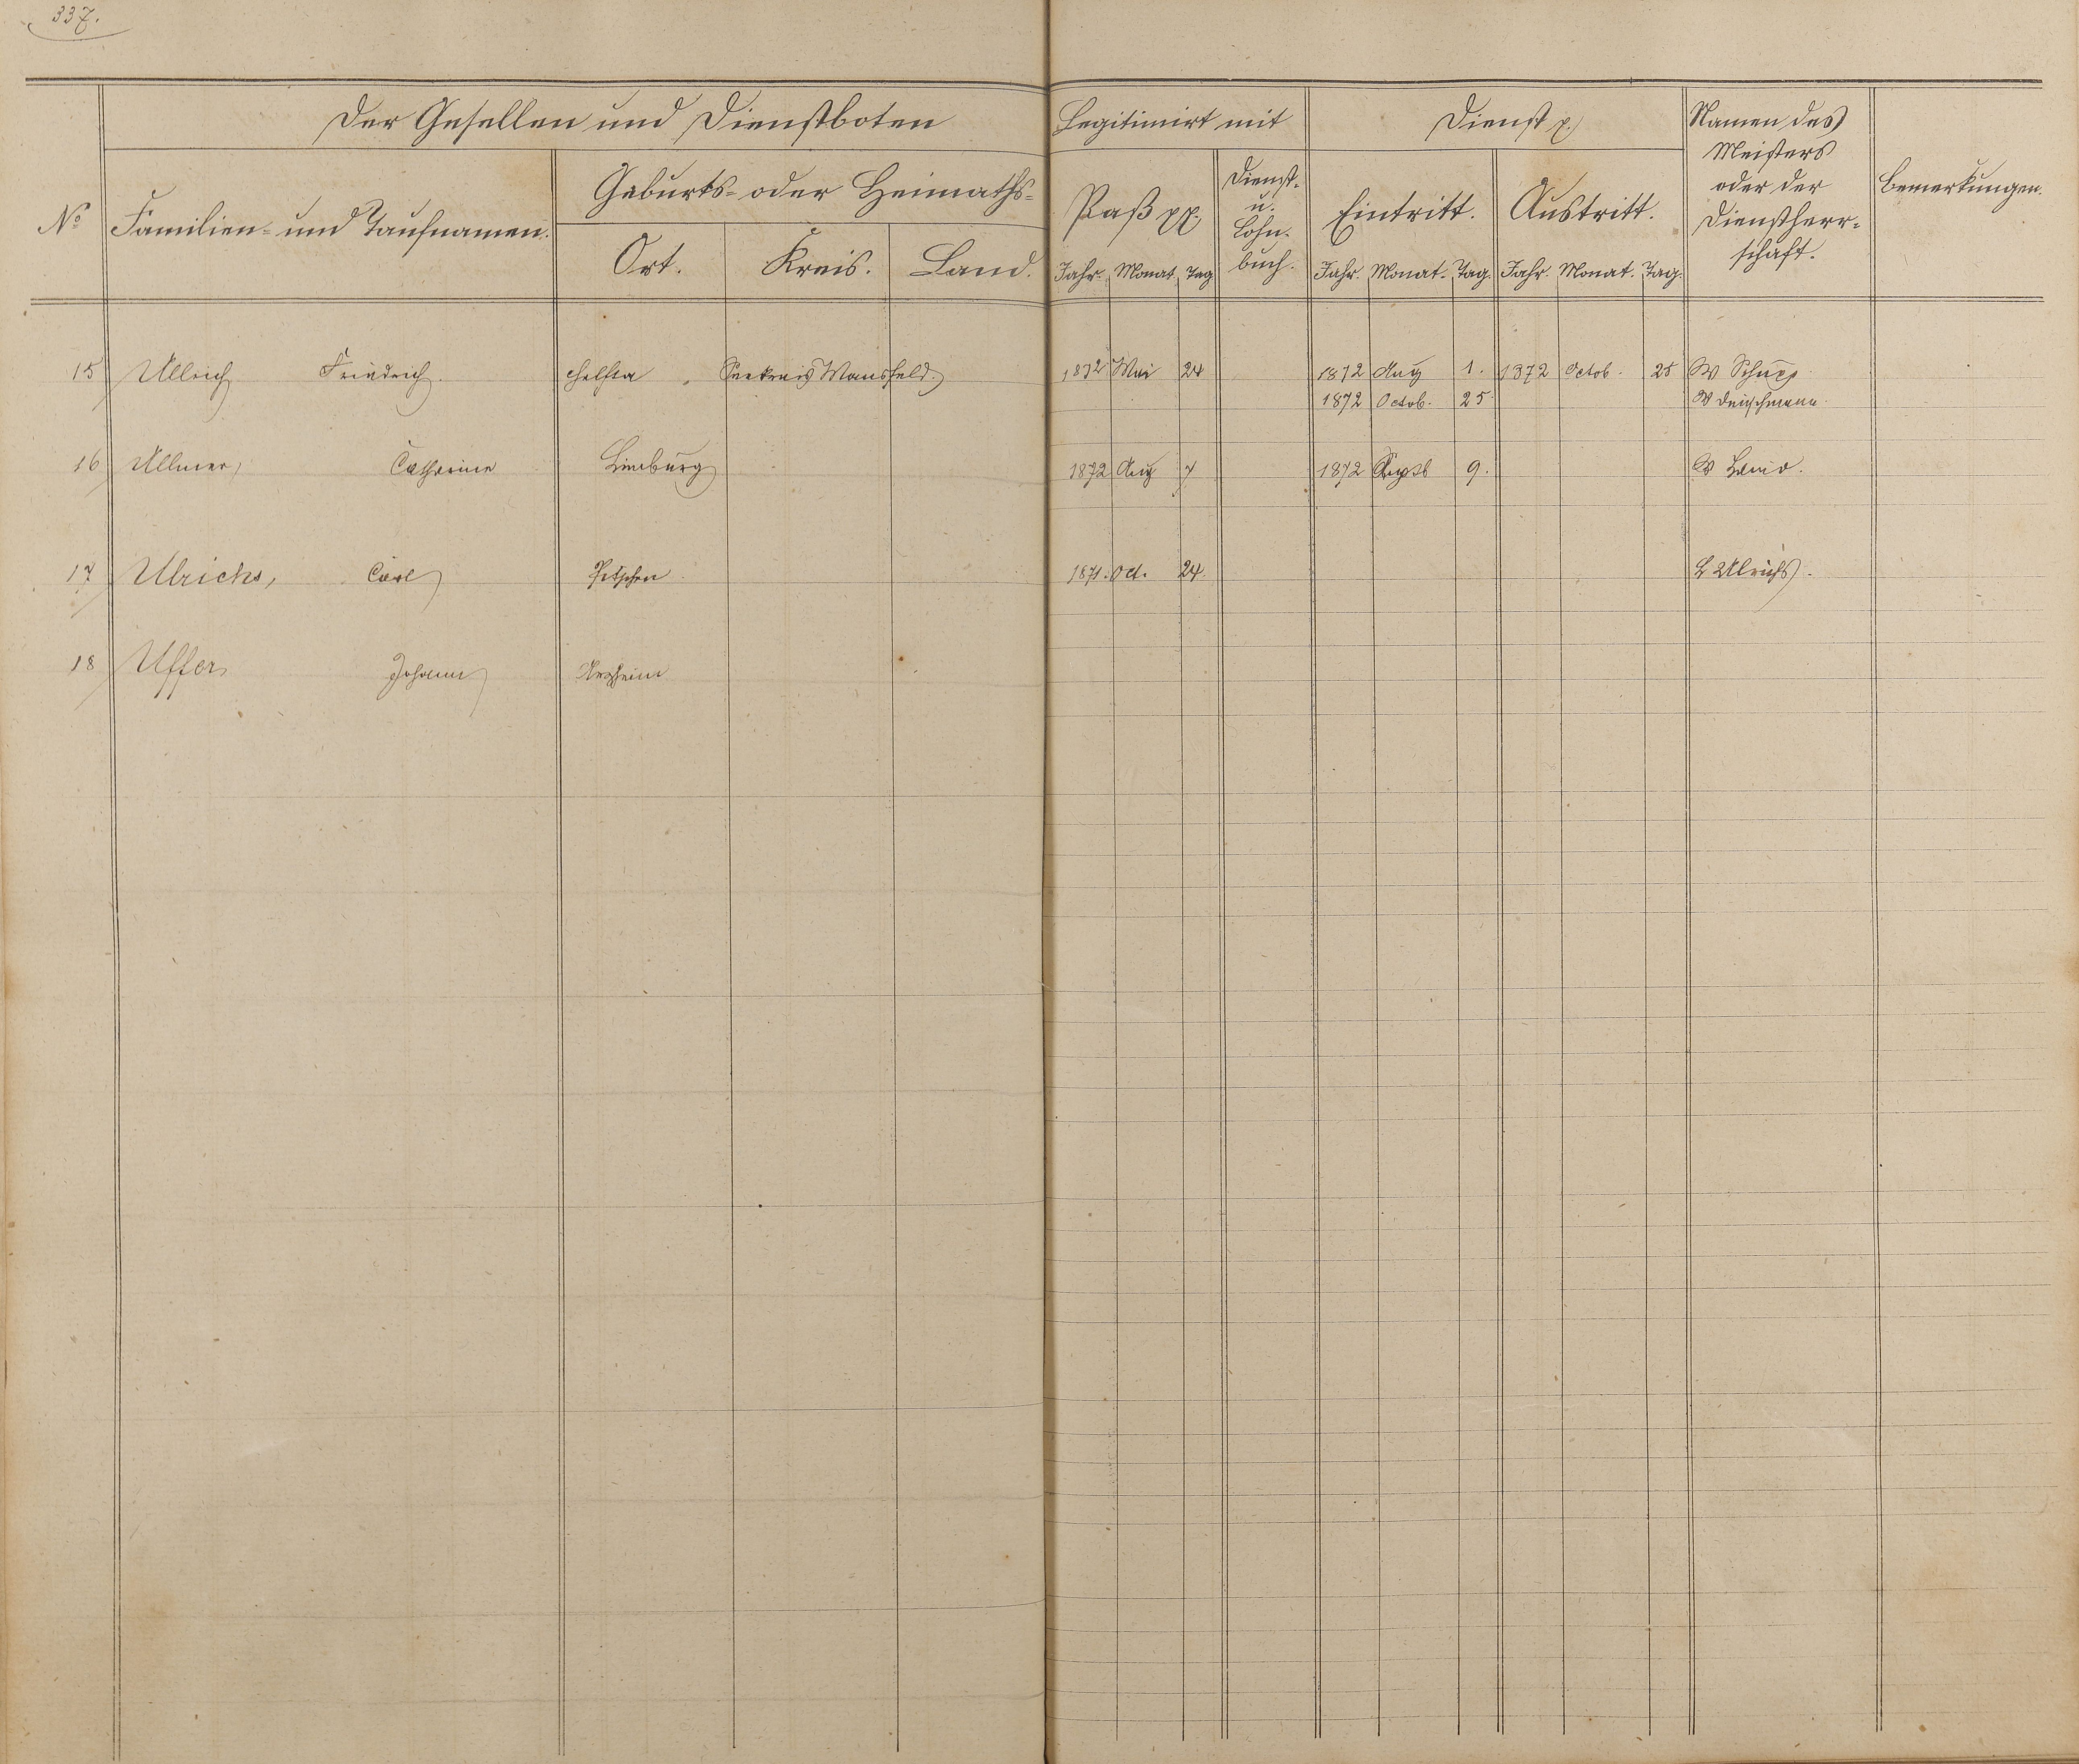 337.
Der Gesellen und Dienstboten
Legitimirt mit
Dienst p.
Namen des
Meisters
oder der
Dienstherr-
schaft.
Bemerkungen.
No
Familien- und Taufnamen.
Geburts- oder Heimaths-
Ort. Kreis. Land.
Paß pp.
Dienst-
u.
Lohn-
buch.
Eintritt. Austritt.
Jahr. Monat. Tag
Jahr. Monat. Tag. Jahr. Monat. Tag.
15 Ullrich Friedrich. Helfta Seekreis Mansfeld. 1872 Mai 24 1872 Aug 1. 1872 Octob. 25 W Schupp
1872 Octob. 25 W Deuschmann.
16 Ullmer, Catharine Limburg 1872 Aug 7 1872 Septb 9. W
17 Ulrichs, Carl Pitschen 1871. Oct. 24. L Ulrichs.
18 Uffer Johann Arzheim